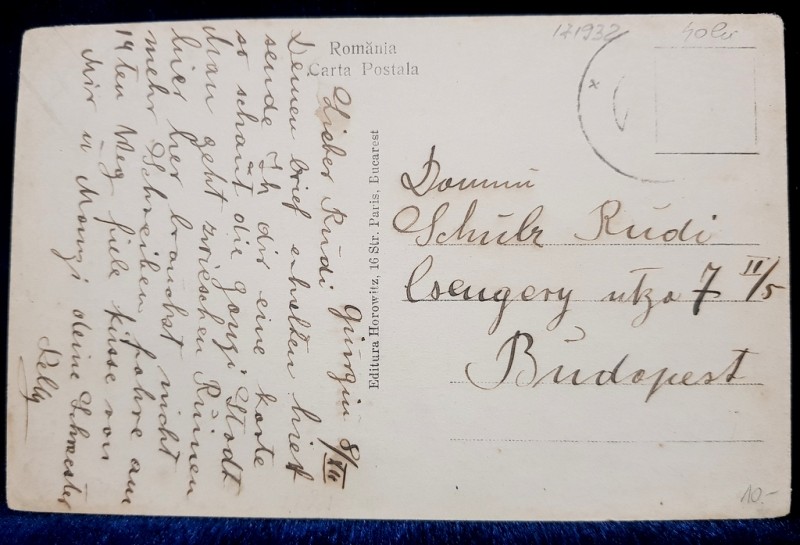 România
Carta Postala
Giurgiu 8/VII
Lieber Rudi
Deinen brief erhalten hier
sende Ich dir eine Karte
so schaut die ganzi Stadt
Man geht zwieschen Ruinen
hier her brauchst nicht
mehr Schreiben, fahre am
14ten Weg fiele küsse von
Mir u Manzi deine Schwester
Editura Horowitz, 16 Str. Paris, Bucarest
Domnu
Schulz Rudi
Csengery utza 7 II/5
Budapest
10.-